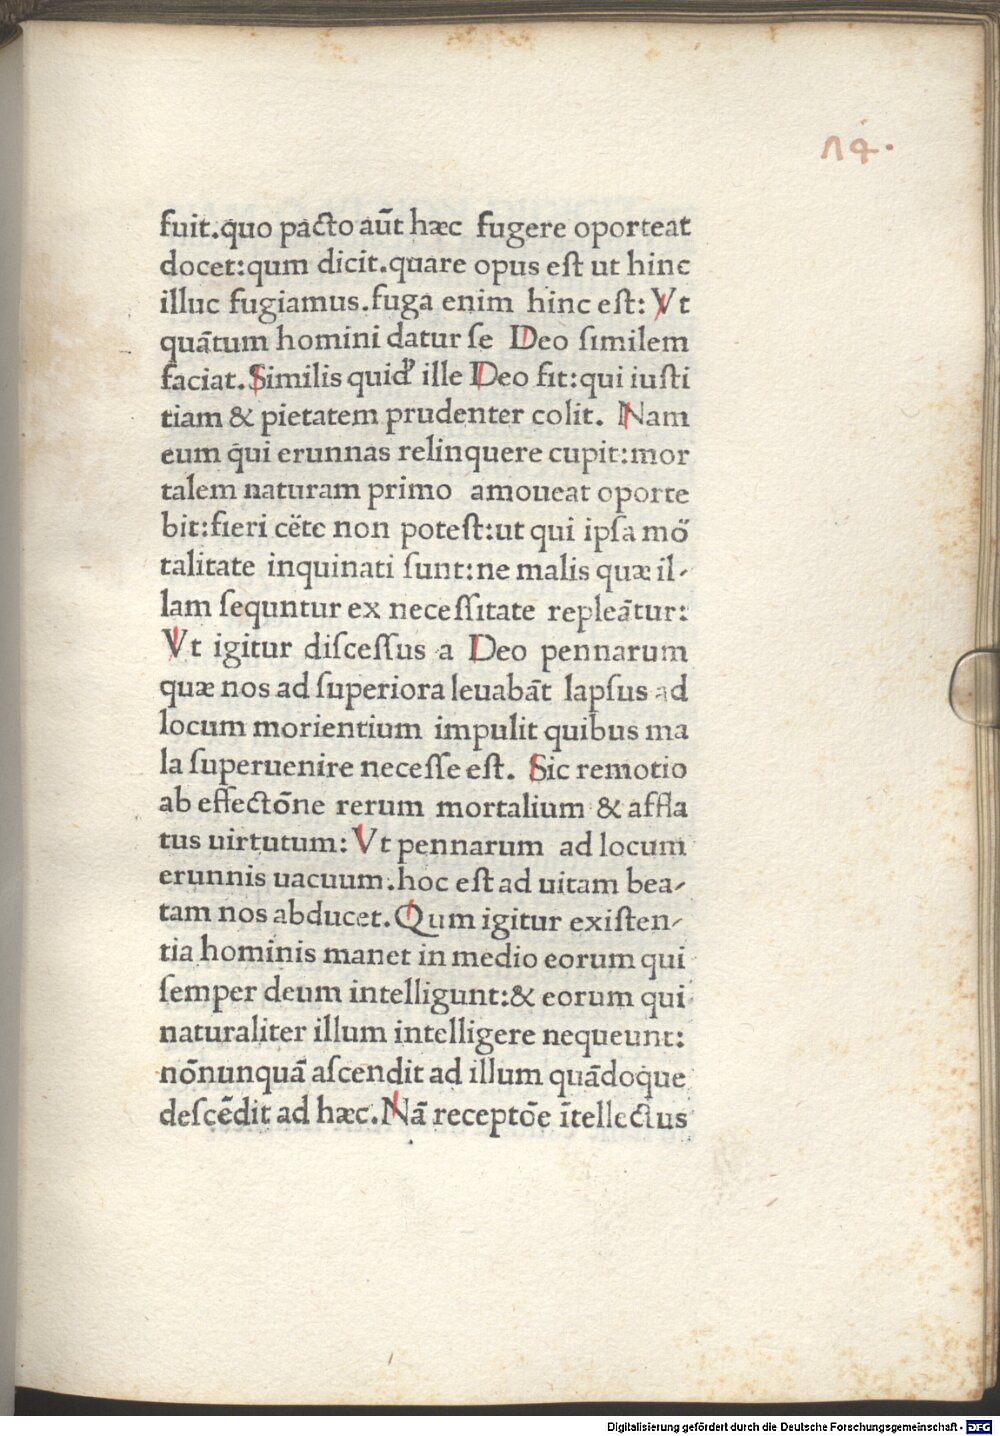 14.
fuit.quo pacto aūt hæc fugere oporteat
docet:qum dicit.quare opus eſt ut hinc
illuc fugiamus.fuga enim hinc eſt: Vt
quãtum homini datur ſe Deo ſimilem
faciat.Similis quid' ille Deo fit:qui iuſti
tiam & pietatem prudenter colit. Nam
eum q̄ui erunnas relinquere cupit:mor
talem naturam primo amoueat oporte
bit:fieri cēte non poteſt:ut qui ipſa mō
talitate inquinati ſunt:ne malis quæ il-
lam ſequntur ex neceſſitate repleãtur:
Vt igitur diſceſſus a Deo pennarum
quæ nos ad ſuperiora leuabãt lapſus ad
locum morientium impulit quibus ma
la ſuperuenire neceſſe eſt. Sic remotio
ab effectõne rerum mortalium & affla
tus uirtutum: Vt pennarum ad locum
erunnis uacuum.hoc eſt ad uitam bea-
tam nos abducet.Qum igitur exiſten-
tia hominis manet in medio eorum qui
ſemper deum intelligunt:& eorum qui
naturaliter illum intelligere nequeunt:
nõnunquã aſcendit ad illum quãdoque
deſcẽdit ad hæc.Nã receptõe ĩtellectus
Digitalisierung gefördert durch die Deutsche Forschungsgemeinschaft - DFG